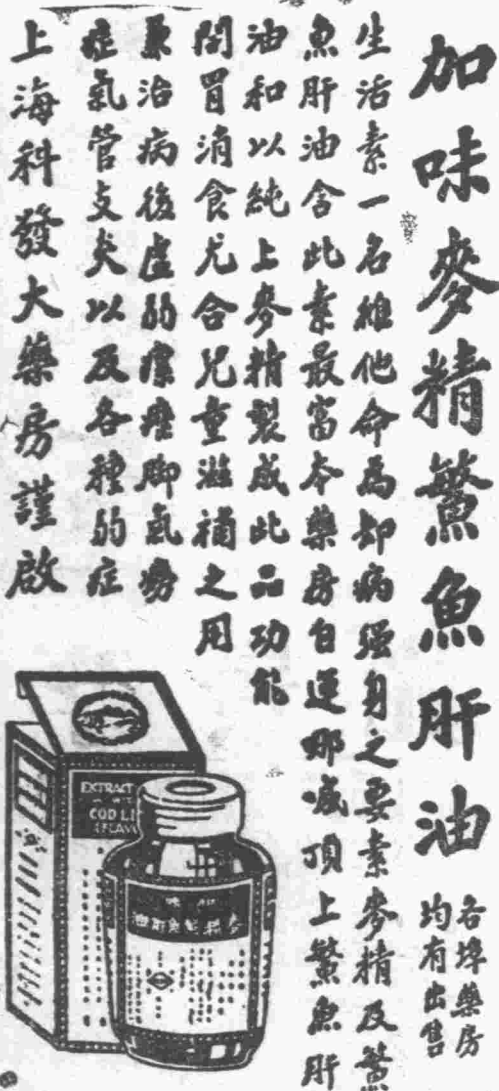 加味麥精鰵魚肝油
各埠藥房
均有出售
生活素一名維他命為却病强身之要素麥精及鰵
魚肝油含此素最富本藥房自運哪喴頂上鰵魚肝
油和以純上麥精製成此品功能
開胃消食尤合兒童滋補之用
兼治病後虛弱瘰癧脚氣癆
症氣管支炎以及各種弱症
上海科發大藥房謹啟
EXTRACT
COD LI
(FLAV
油肝魚鰵精麥